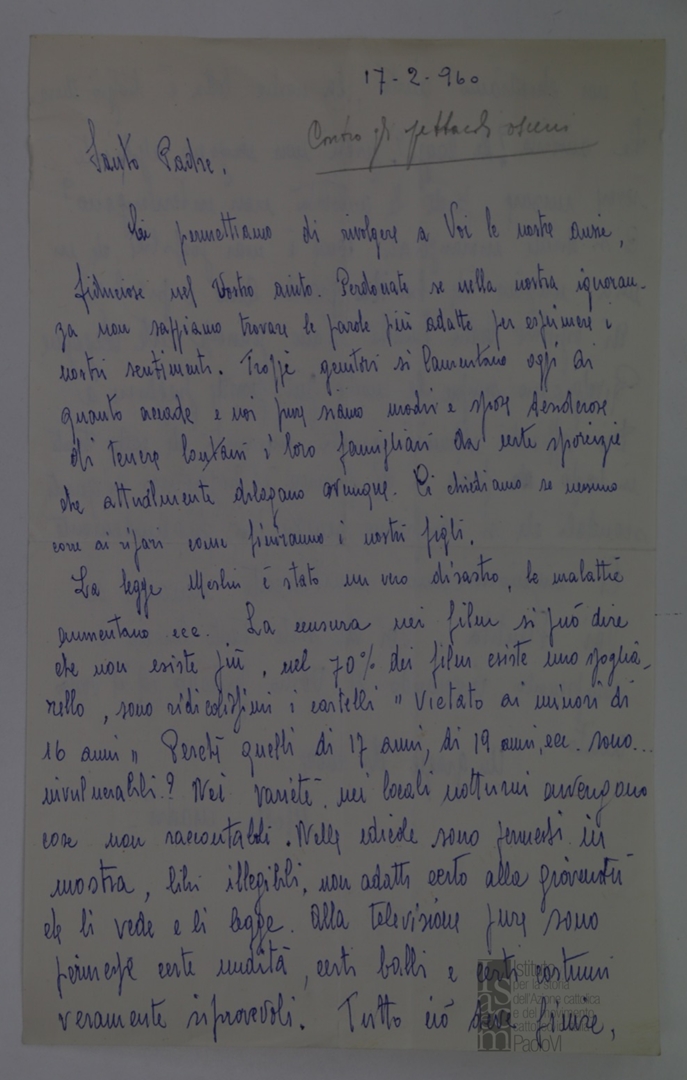 17-2-960
Contro gli spettacoli osceni
Santo Padre,
Ci permettiamo di rivolgere a Voi le nostre ansie,
fiduciose nel Vostro aiuto. Perdonate se nella nostra ignoran-
za non sappiamo trovare le parole più adatte per esprimere i
nostri sentimenti. Troppi genitori si lamentano oggi di
quanto accade e noi pure siamo madri e spose desiderose
di tenere lontani i loro famigliari da certe sporcizie
che attualmente dilagano ovunque. Ci chiediamo se nessuno
corre ai ripari come finiranno i nostri figli.
La legge Merlin è stato un vero disastro, le malattie
aumentano ecc. La censura nei film si può dire
che non esiste più, nel 70% dei film esiste uno spoglia-
rello, sono ridicolissimi i cartelli " Vietato ai minori di
16 anni " Perché quelli di 17 anni, di 19 anni, ecc. sono...
invulnerabili? Nei varietè, nei locali notturni avvengono
cose non raccontabili. Nelle edicole sono permessi in
mostra, libri illegibili, non adatti certo alla gioventù
che li vede e li legge. Alla televisione pure sono
permesse certe nudità, certi balli e certi costumi
veramente riprovevoli. Tutto ciò deve finire,
Istituto
per la storia
dell'Azione cattolica
e del movimento
cattolico
Paolo VI